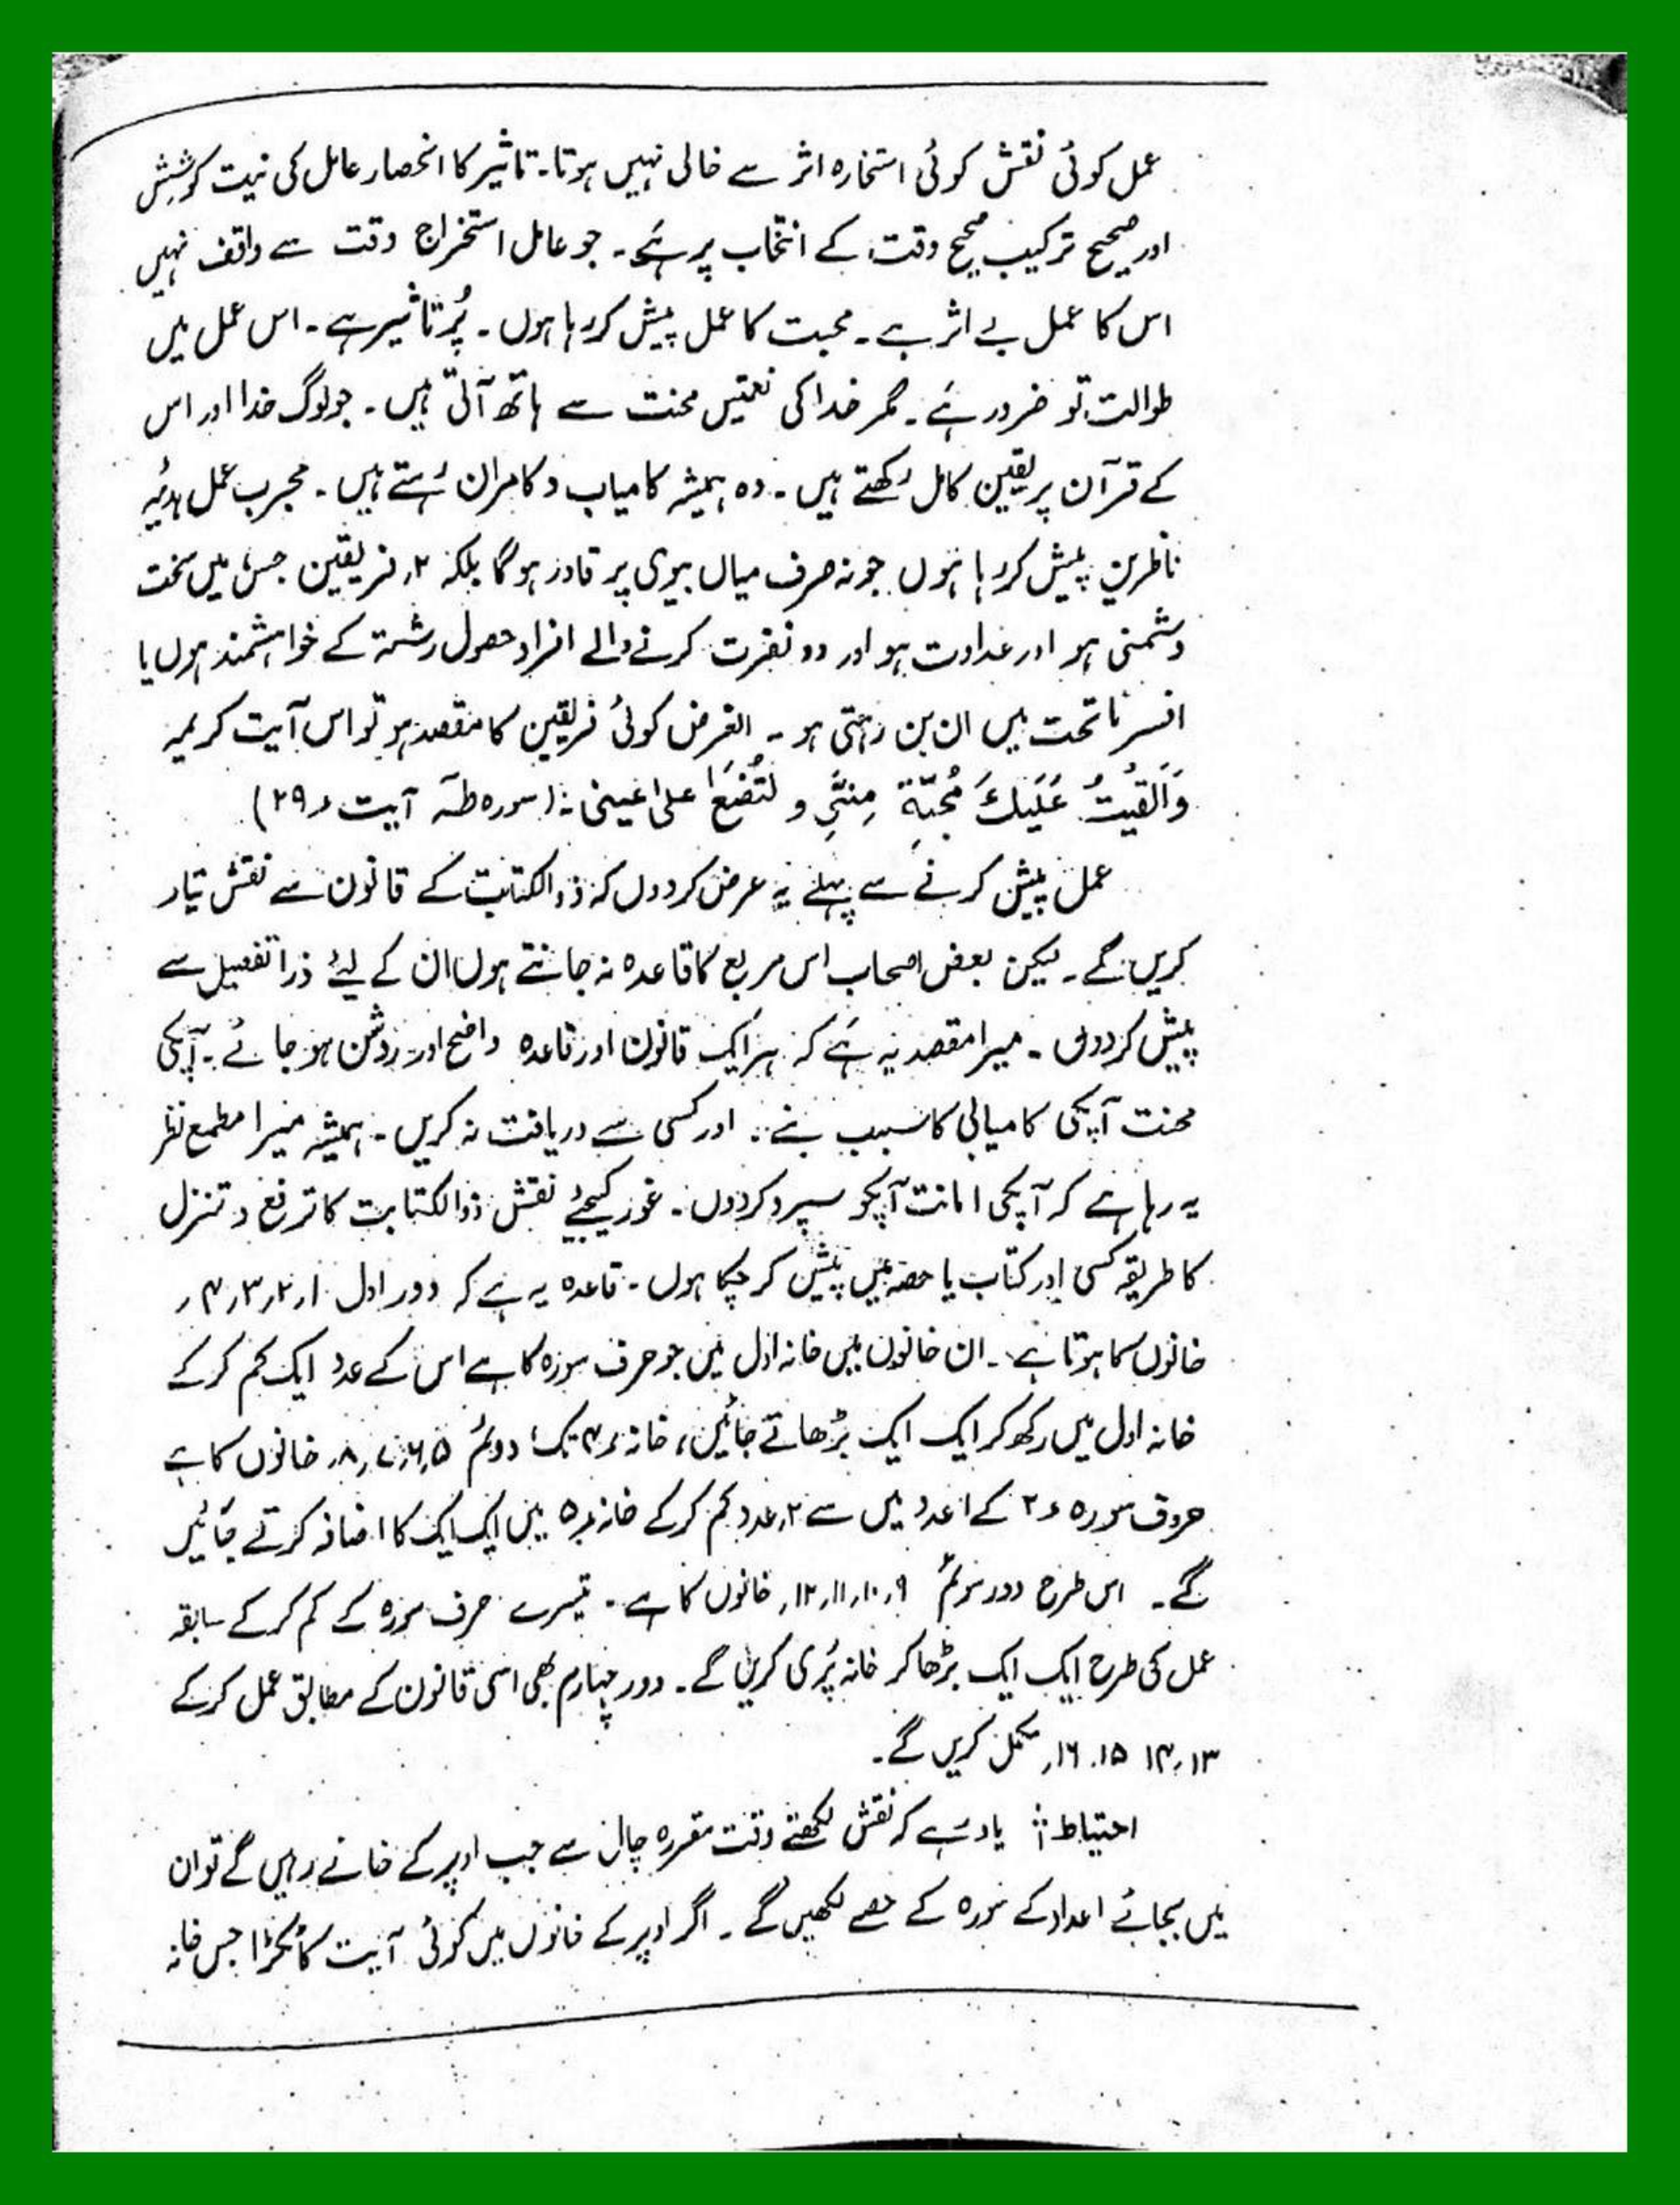 عمل کوئی نقش کوئی استخارہ اثر سے خالی نہیں ہوتا۔ تاثیر کا انحصار عامل کی نیت کوشش
اور صحیح ترکیب صحیح وقت کے انتخاب پر ہے۔ جو عامل استخراج وقت سے واقف نہیں
اس کا عمل بے اثر ہے۔ محبت کا عمل پیش کر رہا ہوں۔ پُر تاثیر ہے۔ اس عمل میں
طوالت تو ضرور ہے۔ مگر خدا کی نعمتیں محنت سے ہاتھ آتی ہیں۔ جو لوگ خدا اور اس
کے قرآن پر یقین کامل رکھتے ہیں۔ وہ ہمیشہ کامیاب و کامران رہتے ہیں۔ مجرب عمل ہدیہ
ناظرین پیش کر رہا ہوں جو نہ صرف میاں بیوی پر قادر ہوگا بلکہ ۲ فریقین جس میں سخت
دشمنی ہو اور عداوت ہو اور دو نفرت کرنے والے افراد حصول رشتہ کے خواہشمند ہوں یا
افسر ماتحت میں ان بن رہتی ہو۔ الغرض کوئی فریقین کا مقصد ہو تو اس آیت کریمہ
وَاَلقَیتُ عَلَیكَ مُحبّةِ مِنّیِ و لتُصَنَعَا علیٰ عینی: (سورہ طٰہٰ آیت ۲۹)
عمل پیش کرنے سے پہلے یہ عرض کر دوں کہ ذوالکتابت کے قانون سے نقش تیار
کریں گے۔ لیکن بعض اصحاب اس مربع کا قاعدہ نہ جانتے ہوں ان کے لیۓ ذرا تفصیل سے
پیش کر دوں۔ میرا مقصد یہ ہے کہ ہر ایک قانون اور قاعدہ واضح اور روشن ہو جائے۔ آپکی
محنت آپکی کامیابی کا سبب بنے۔ اور کسی سے دریافت نہ کریں۔ ہمیشہ میرا مطمع نظر
یہ رہا ہے کہ آپکی امانت آپکو سپرد کر دوں۔ غور کیجئے نقش ذوالکتابت کا ترفع و تنزل
کا طریقہ کسی اور کتاب یا حصہ میں پیش کر چکا ہوں۔ قاعدہ یہ ہے کہ دور اول ۱،۲،۳،۴،
خانوں کا ہوتا ہے۔ ان خانوں میں خانہ اول میں جو حرف سورہ کا ہے اس کے عدد ایک کم کر کے
خانہ اول میں رکھ کر ایک ایک بڑھاتے جائیں، خانہ ۴ تک، دوئم ۵،۶،۷،۸، خانوں کا ہے
حروف سورہ ۲ کے اعداد میں سے ۲ عدد کم کر کے خانہ ۵ میں ایک ایک کا اضافہ کرتے جائیں
گے۔ اس طرح دور سوئم ۹،۱۰،۱۱،۱۲، خانوں کا ہے۔ تیسرے حرف سورہ کے کم کر کے سابقہ
عمل کی طرح ایک ایک بڑھا کر خانہ پُری کریں گے۔ دور چہارم بھی اسی قانون کے مطابق عمل کر کے
۱۳،۱۴ ۱۵،۱۶، مکمل کریں گے۔
احتیاط: یاد رہے کہ نقش لکھتے وقت مقررہ چال سے جب اوپر کے خانے رہیں گے تو ان
میں بجائے اعداد کے سورہ کے حصے لکھیں گے۔ اگر اوپر کے خانوں میں کوئی آیت کا ٹکڑا جس خانہ